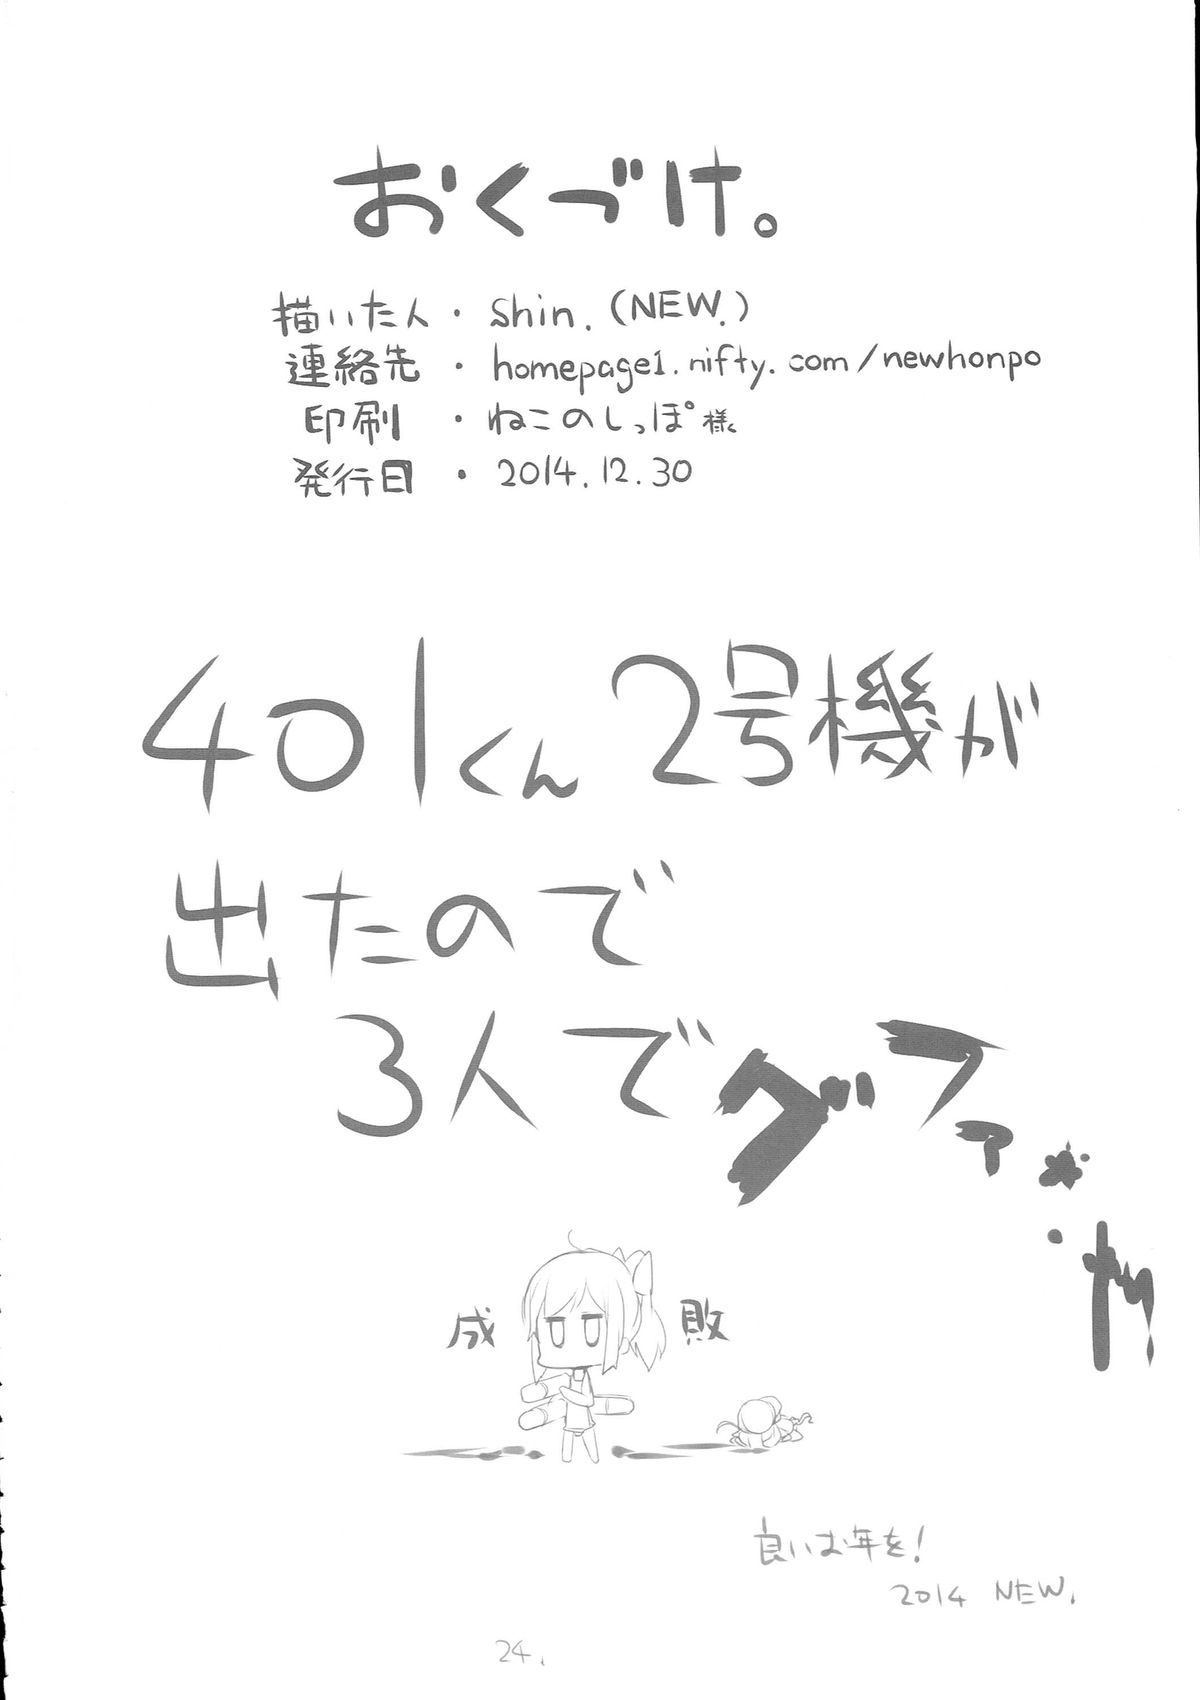 おくづけ。
描いた人・Shin.(NEW.)
連絡先・homepage1.nifty.com/newhonpo
印刷・ねこのしっぽ様
発行日・2014.12.30
401くん2号機が
出たので
3人でグファ
成敗
良いお年を!
2014 NEW.
24.